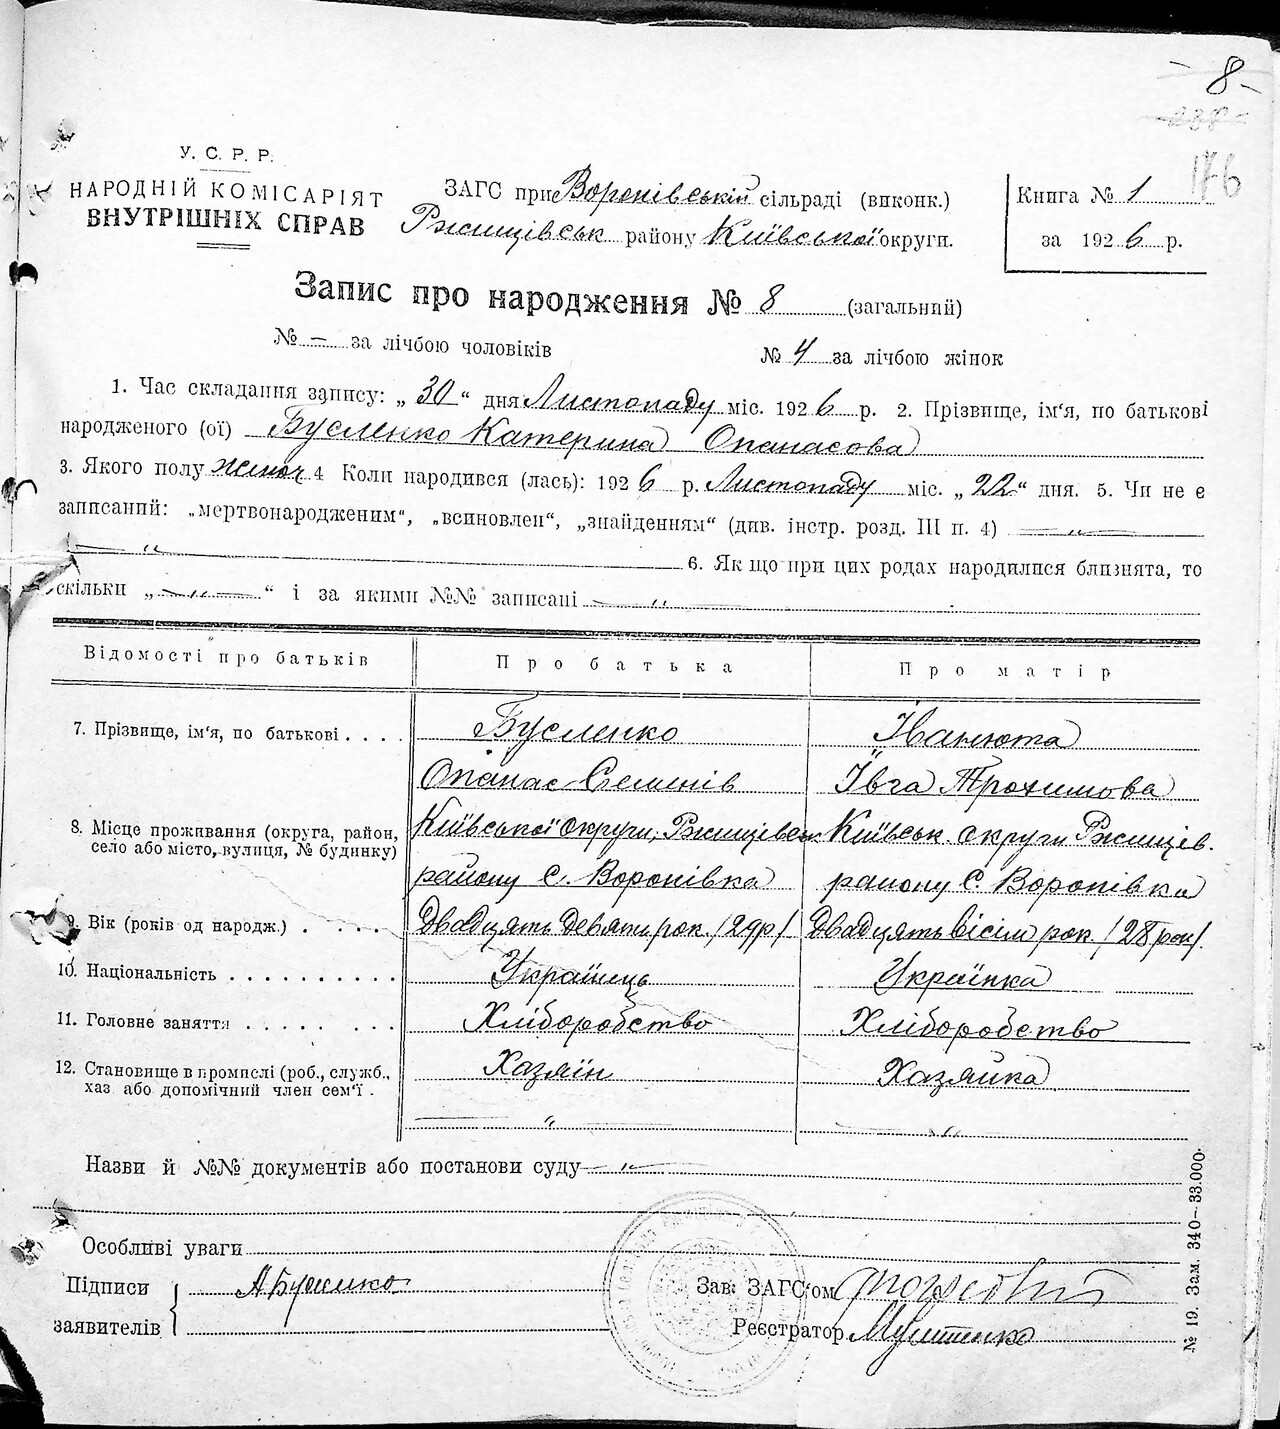 - 8 -
238
176
У. С. Р. Р.
НАРОДНІЙ КОМІСАРІЯТ
ВНУТРІШНІХ СПРАВ
ЗАГС при Воронівській сільраді (виконк.)
Ржищівськ району Київської округи.
Книга № 1
за 1926 р.
Запис про народження № 8 (загальний)
№ – за лічбою чоловіків
№ 4 за лічбою жінок
1. Час складання запису: „30“ дня Листопаду міс. 1926 р. 2. Прізвище, ім'я, по батькові
народженого (ої) Бусленко Катерина Опанасова
3. Якого полу жіноч 4 Коли народився (лась): 1926 р. Листопаду міс. „22“ дня. 5. Чи не є
записаний: „мертвонародженим“, „всиновлен“, „знайденням“ (див. інстр. розд. III п. 4) — „ —
— „ 6. Як що при цих родах народилися близнята, то
скільки „— „ —“ і за якими №№ записані — „ —
Відомості про батьків
Про батька
Про матір
7. Прізвище, ім'я, по батькові . . . .
Бусленко
Іванюта
Опанас Семенів
Івга Трохимова
8. Місце проживання (округа, район,
село або місто, вулиця, № будинку)
Київської округи, Ржищівськ
Київськ. округи Ржищів.
району С. Воронівка
району С. Воронівка
9. Вік (років од народж.) . . . . .
Двадцять девять рок. /29 р/
Двадцять вісім рок. /28 рок/.
10. Національність . . . . . . . . . .
Українець
Українка
11. Головне заняття . . . . . . . .
Хліборобство
Хліборобство
12. Становище в промислі (роб., служб.,
хаз або допомічний член сем'ї .
Хазяїн
Хазяйка
— „ —
— „
Назви й №№ документів або постанови суду — „ —
Особливі уваги
Підписи
заявителів
А Бусленко
Зав. ЗАГС'ом
Реєстратор
№ 19. Зам. 340–33.000.